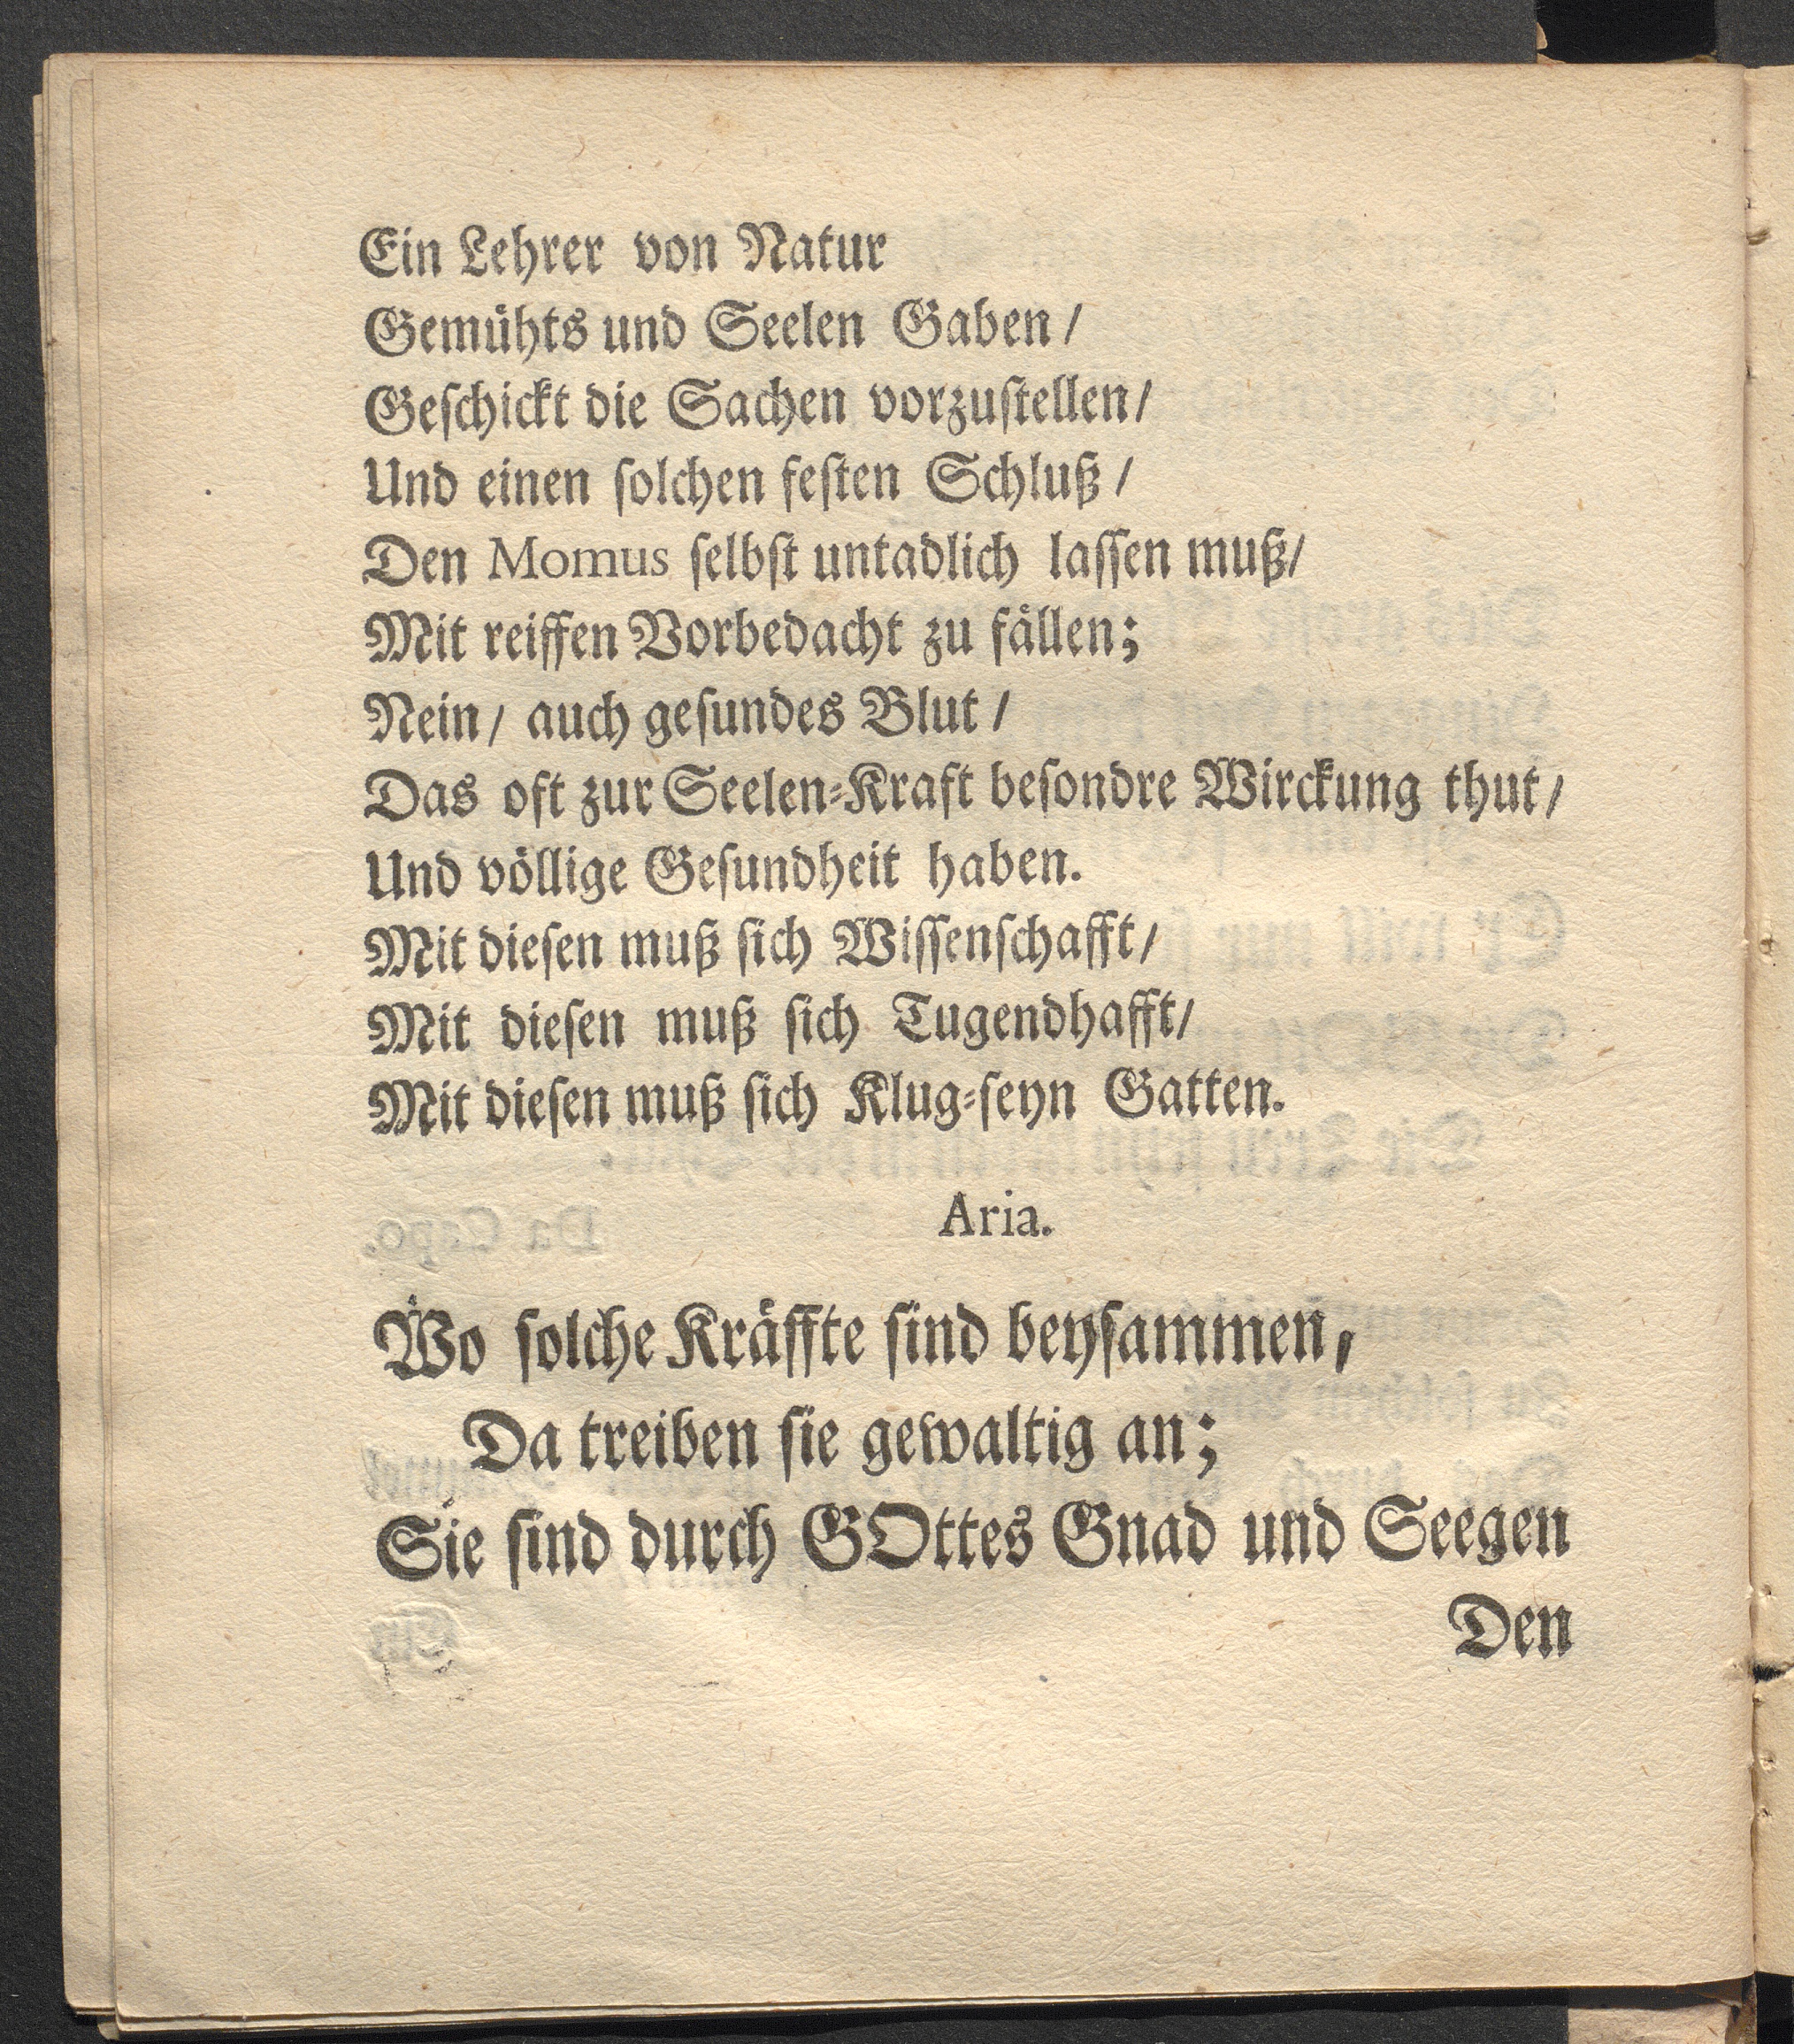 Ein Lehrer von Natur
Gemühts und Seelen Gaben /
Geſchickt die Sachen vorzuſtellen/
Und einen ſolchen feſten Schluß /
Den Momus ſelbſt untadlich laſſen muß/
Mit reiffen Vorbedacht zu fällen;
Nein/ auch geſundes Blut /
Das oft zur Seelen-Kraft beſondre Wirckung thut/
Und völlige Geſundheit haben.
Mit dieſen muß ſich Wiſſenſchafft/
Mit dieſen muß ſich Tugendhafft/
Mit dieſen muß ſich Klug-ſeyn Gatten.
Aria.
Wo ſolche Kräffte ſind beyſammen,
Da treiben ſie gewaltig an;
Sie ſind durch GOttes Gnad und Seegen
Den